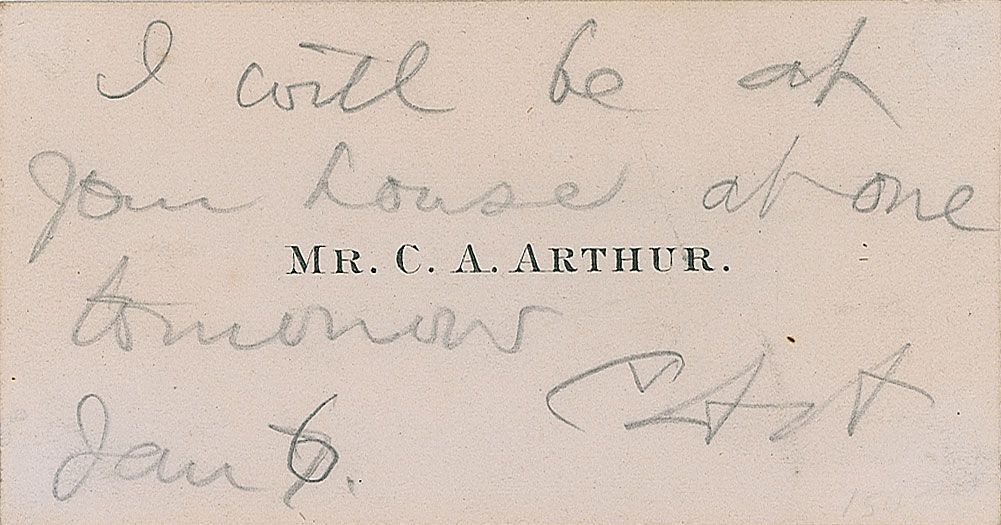 I will be at
your house at one
MR. C. A. ARTHUR.
tomorrow
CAA
Jan 6.